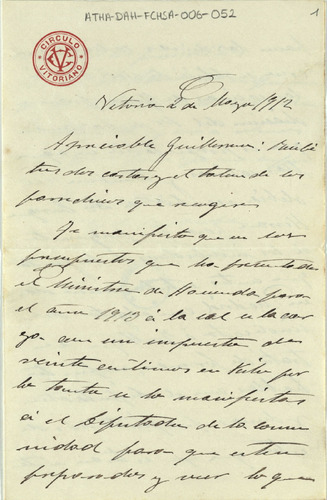 ATHA-DAH-FCHSA-006-052
1
CIRCULO VITORIANO
Vitoria 2 de Mayo 1912
Apreciable Guillermo: Recibí
tus dos cartas y el talon de los
que
Te manifiesto que en los
presupuestos que ha presentado
el Ministro de Hacienda para
el año 1913 á la sal se la car
ga con un impuesto de
veinte centimos en kilo por
lo tanto se lo manifiestas
á el Diputado de la comu
nidad para que esten
preparados y ver lo que